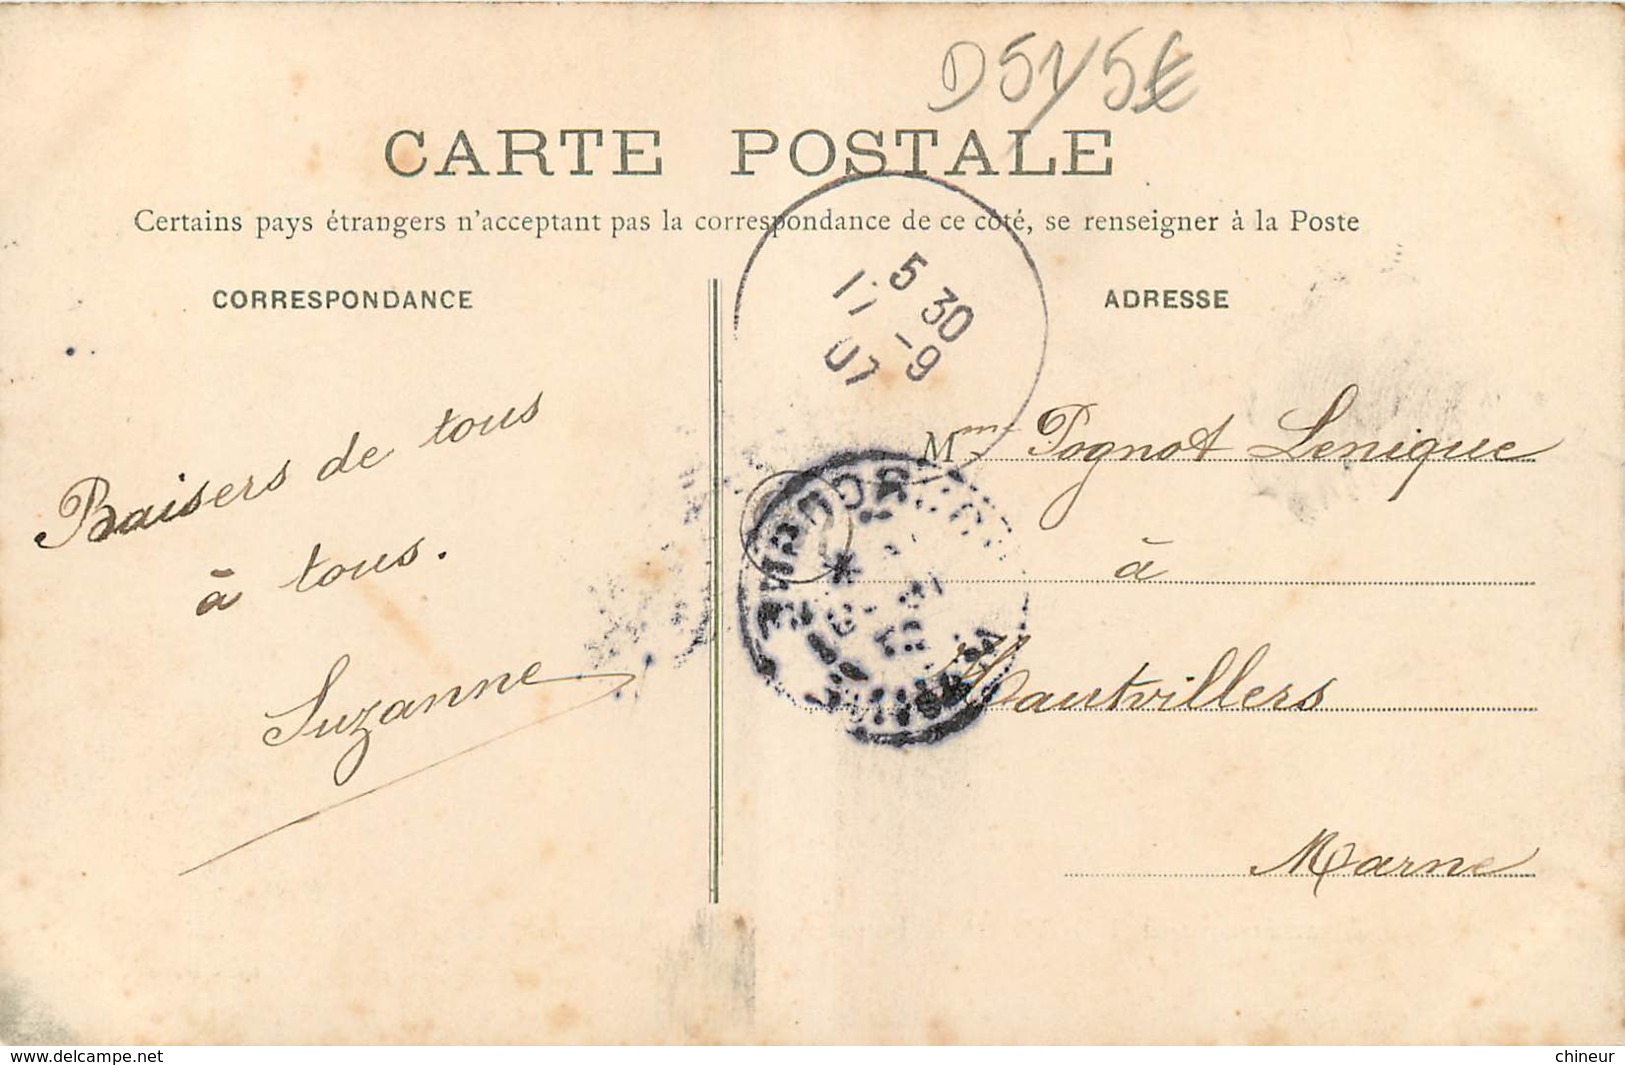 D51/5€
CARTE POSTALE
Certains pays étrangers n'acceptant pas la correspondance de ce côté, se renseigner à la Poste
CORRESPONDANCE
ADRESSE
5 30
17 -9
07
Baisers de tous
à tous.
Suzanne
Mme Pognot Lenique
à
Hautvillers
Marne
www.delcampe.net
chineur